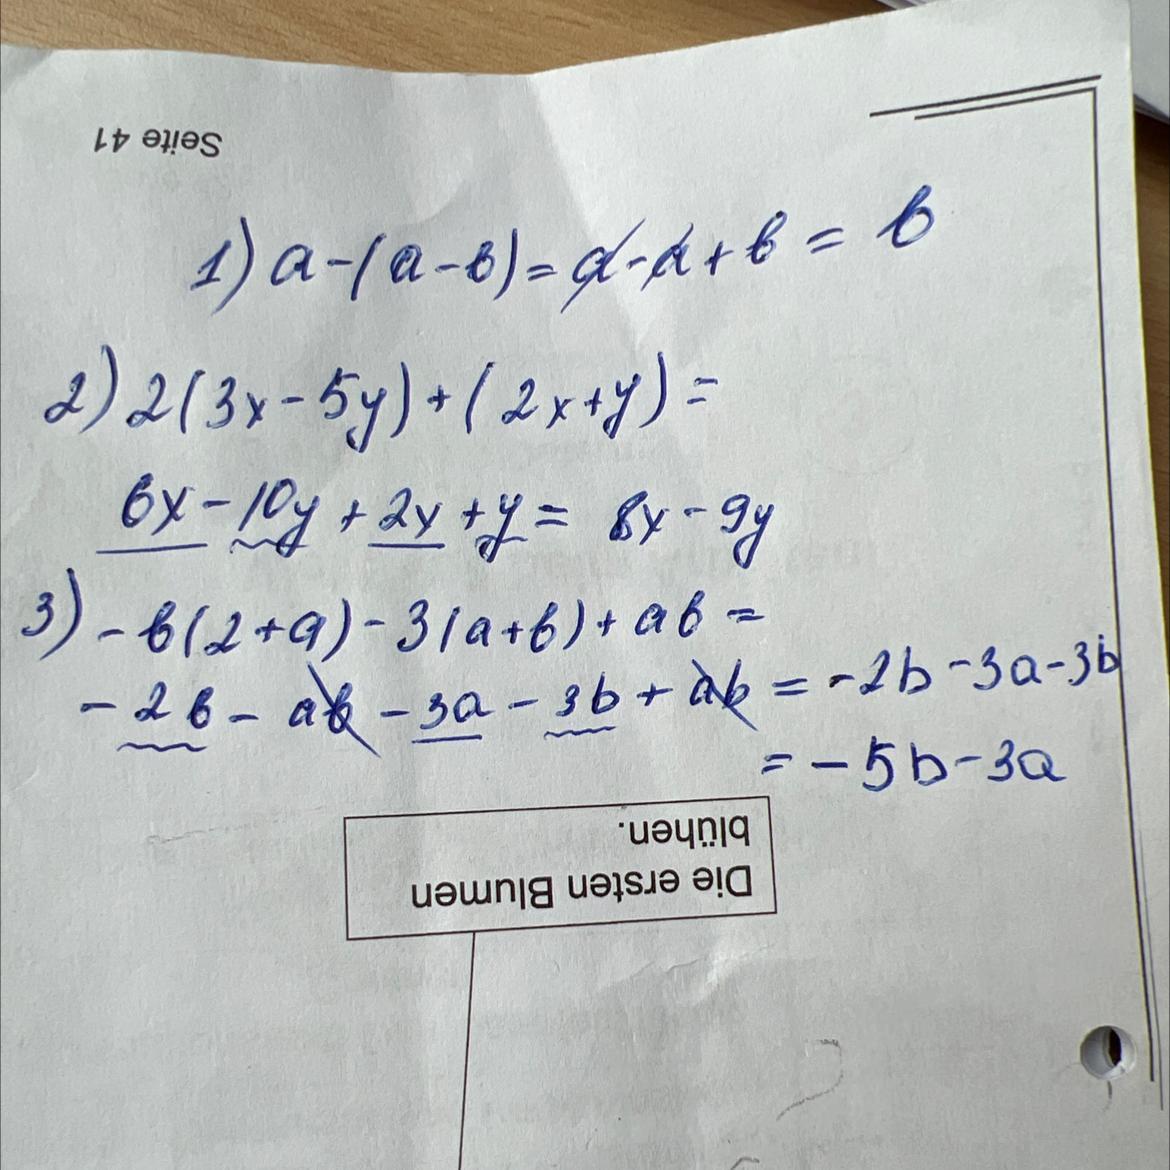 Seite 41
1) a-(a-b)=a-a+b=b
2) 2(3x-5y)+(2x+y)=
6x-10y+2x+y= 8x-9y
3) -b(2+a)-3(a+b)+ab=
-2b-ab-3a-3b+ab=-2b-3a-3b
=-5b-3a
Die ersten Blumen
blühen.